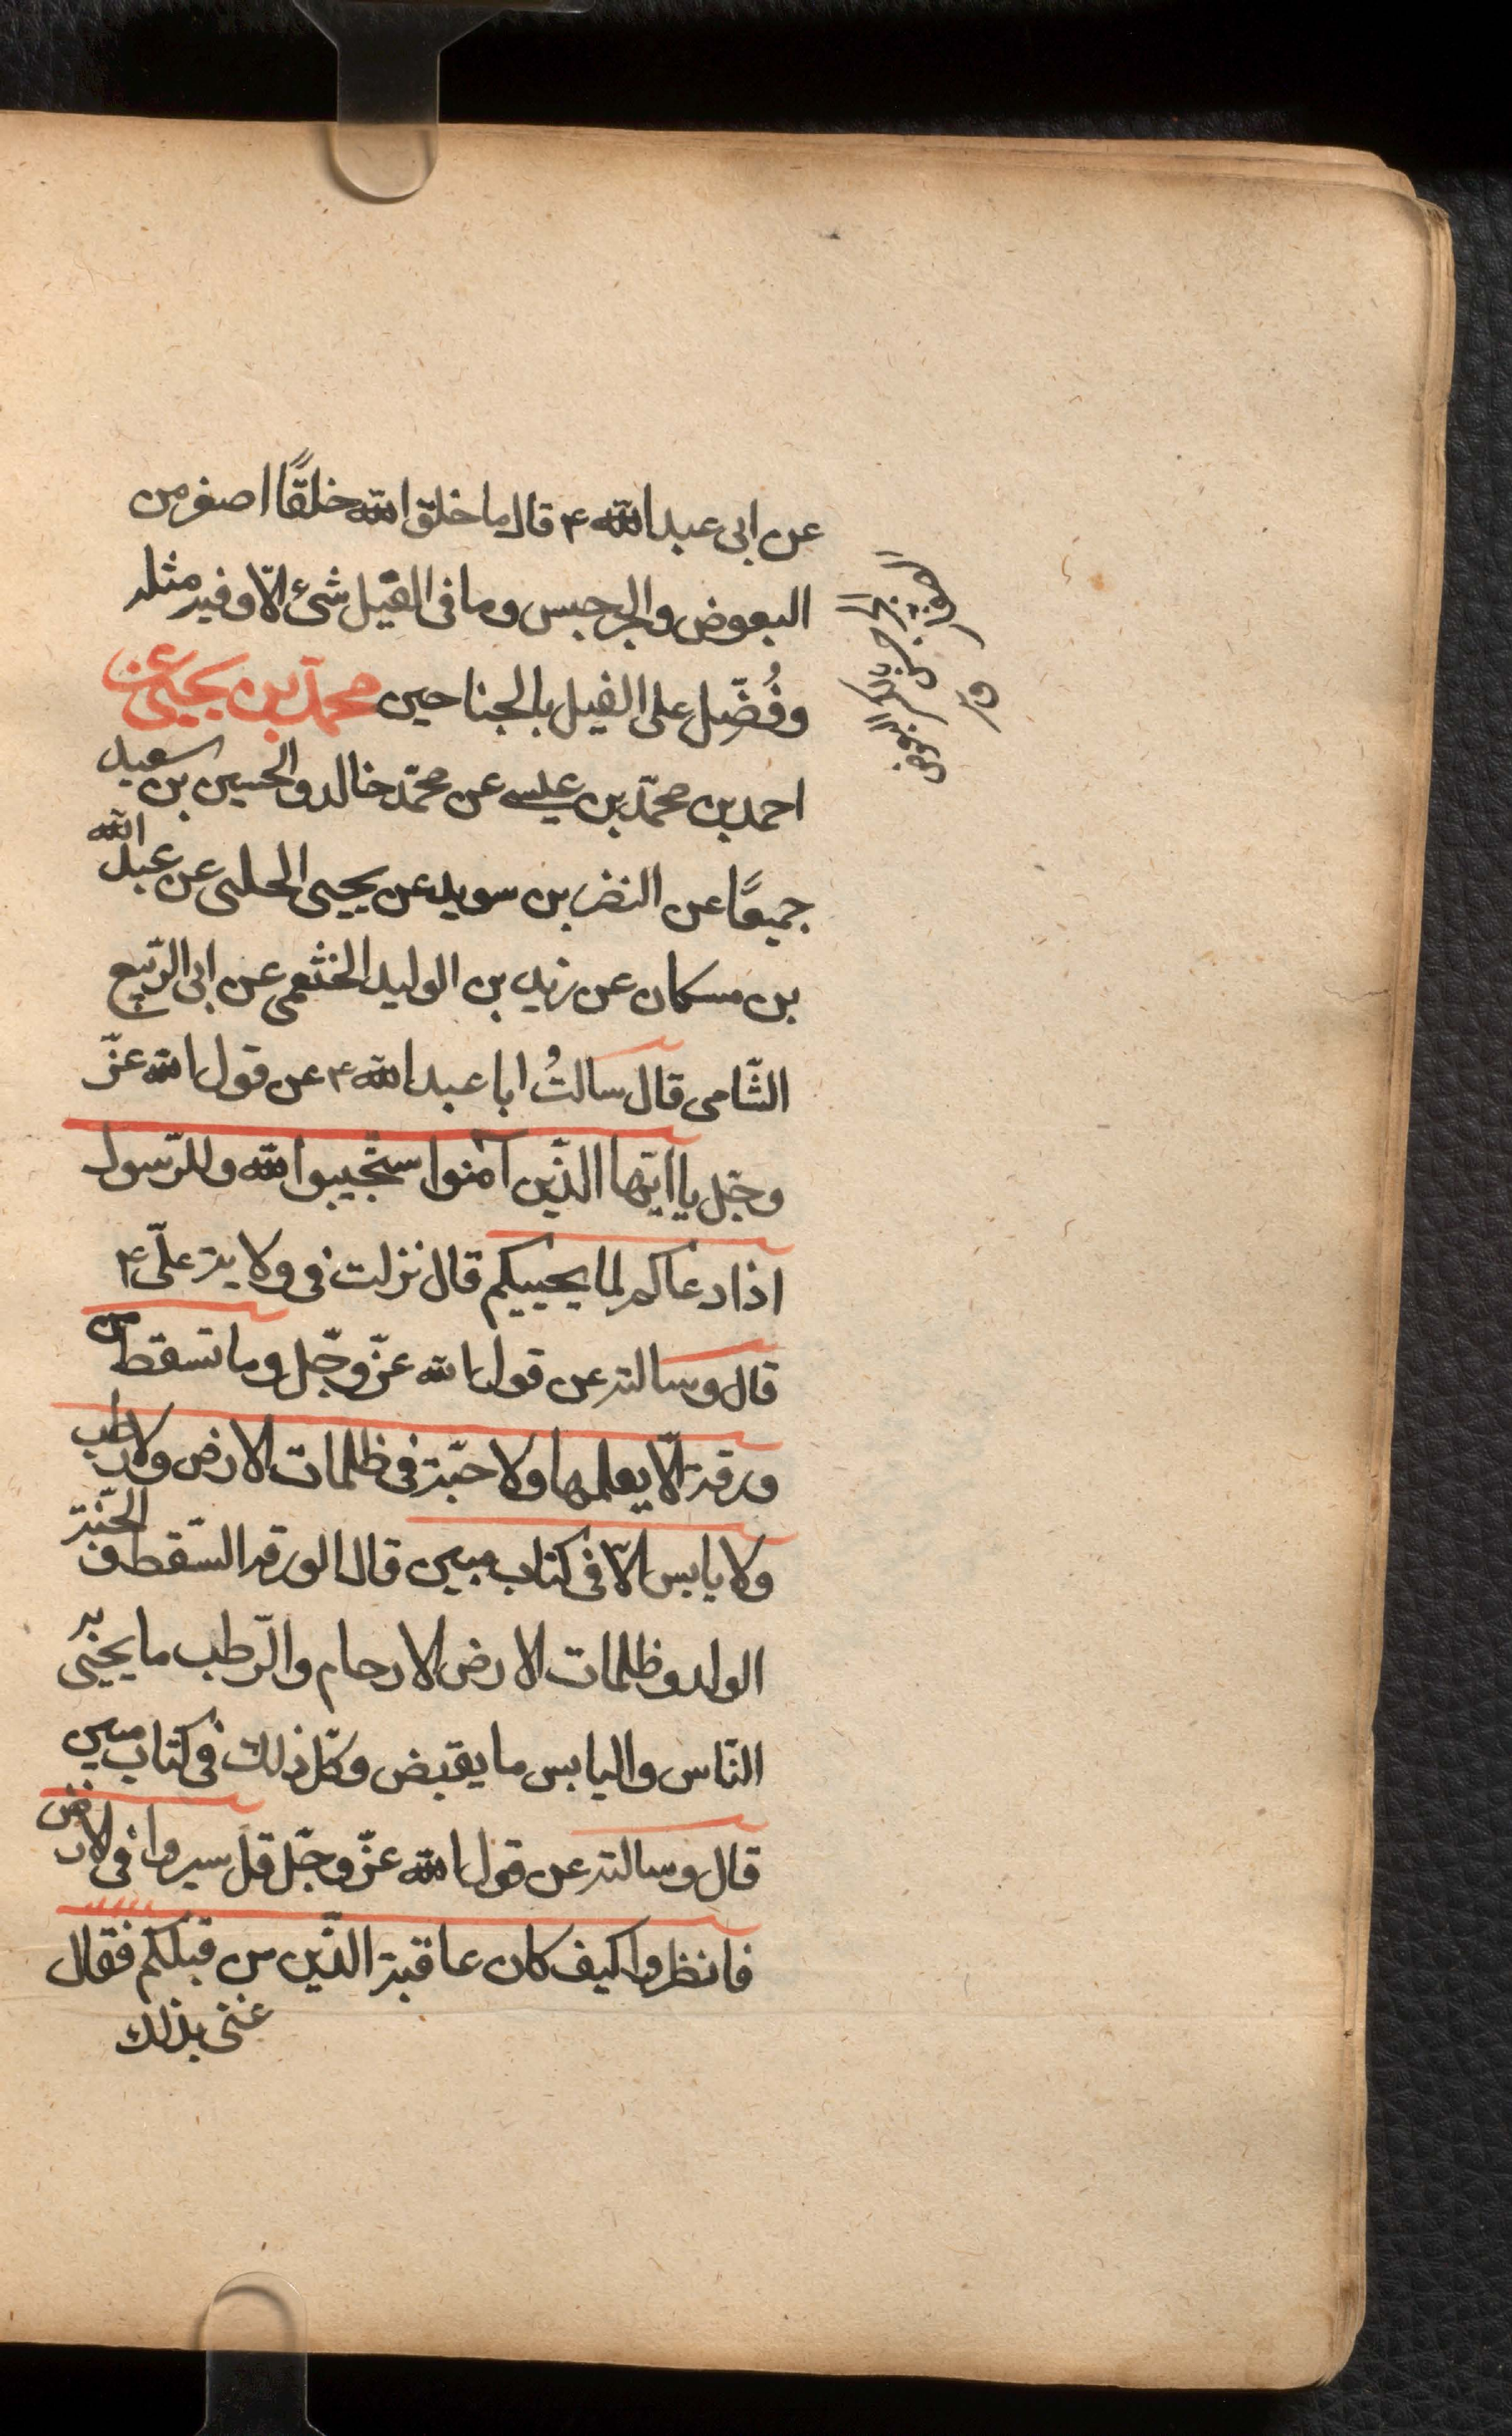 عن ابی عبد الله ۴ قال ما خلق الله خلقًا اصغر من
البعوض والجرجس وما فی الفیل شئ الّا وفیه مثله
وفُضّل علی الفیل بالجناحین محمّد بن یحیی عن
احمد بن محمّد بن عیسی عن محمّد خالد والحسین بن سعید
جمیعًا عن النضر بن سوید عن یحیی الحلبی عن عبد الله
بن مسکان عن زید بن الولید الخثعمی عن ابی الرّبیع
الشّامی قال سالتُ ابا عبد الله ۴ عن قول الله عزّ
وجّل یا ایّها الذّین آمنوا ستجیبوا لله وللرّسول
اذا دعاکم لما یحییکم قال نزلت فی ولایة علّی ۴
قال وسالته عن قول الله عزّ وجّل وما تسقط من
ورقة الّا یعلمها ولا حبّة فی ظلمات الارض ولا رطب
ولا یابس الّا فی کتاب مبین قال الورقه السّقط و الحبّة
الولد وظلمات الارض الارحام والرّطب ما یحیی به
النّاس والیابس ما یقبض وکلّ ذلك فی کتاب مبین
قال وسالته عن قول الله عزّ وجّل قل سیروا فی لارض
فانظروا کیف کان عاقبة الذّین من قبلکم فقال
عنی بذلك